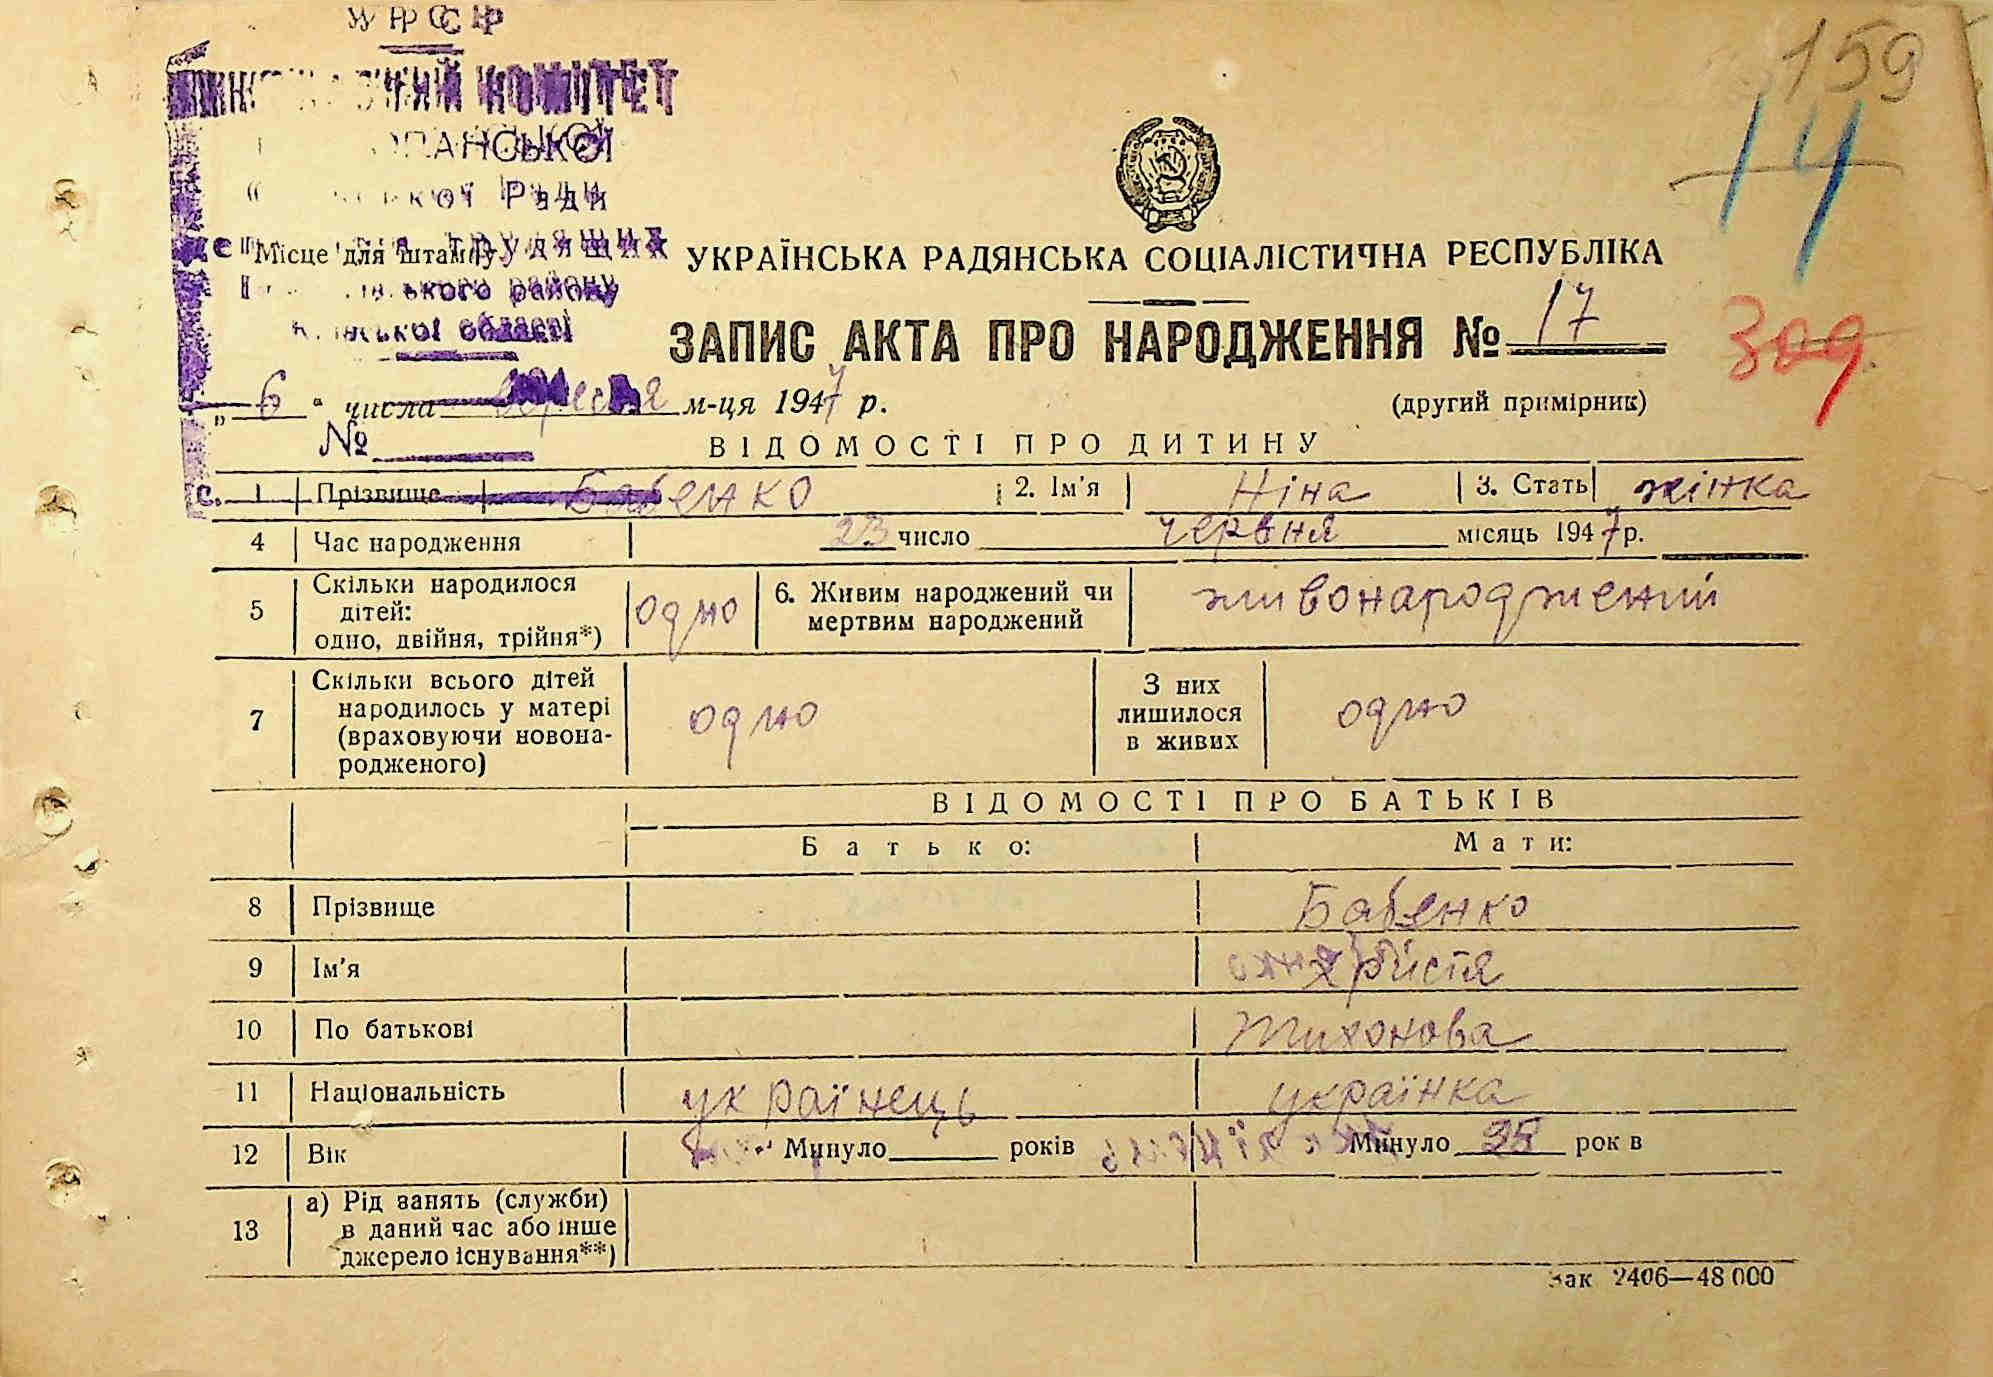 УРСР
КОМІТЕТ
Ради
трудящих
ького району
ської області
159
14
Місце для штампу
УКРАЇНСЬКА РАДЯНСЬКА СОЦІАЛІСТИЧНА РЕСПУБЛІКА
ЗАПИС АКТА ПРО НАРОДЖЕННЯ № 17
309
„ 6 “ числа вересня м-ця 1947 р.
(другий примірник)
№
ВІДОМОСТІ ПРО ДИТИНУ
1 Прізвище Бабенко 2. Ім'я Ніна 3. Стать жінка
4 Час народження 23 число червня місяць 1947 р.
5 Скільки народилося дітей: одно, двійня, трійня*) одно 6. Живим народжений чи мертвим народжений живонароджений
7 Скільки всього дітей народилось у матері (враховуючи новонародженого) одно З них лишилося в живих одно
ВІДОМОСТІ ПРО БАТЬКІВ
Батько: Мати:
8 Прізвище Бабенко
9 Ім'я Христя
10 По батькові Тихонова
11 Національність українець українка
12 Вік Минуло років Минуло рок в
13 а) Рід занять (служби) в даний час або інше джерело існування**)
Зак 2406—48 000